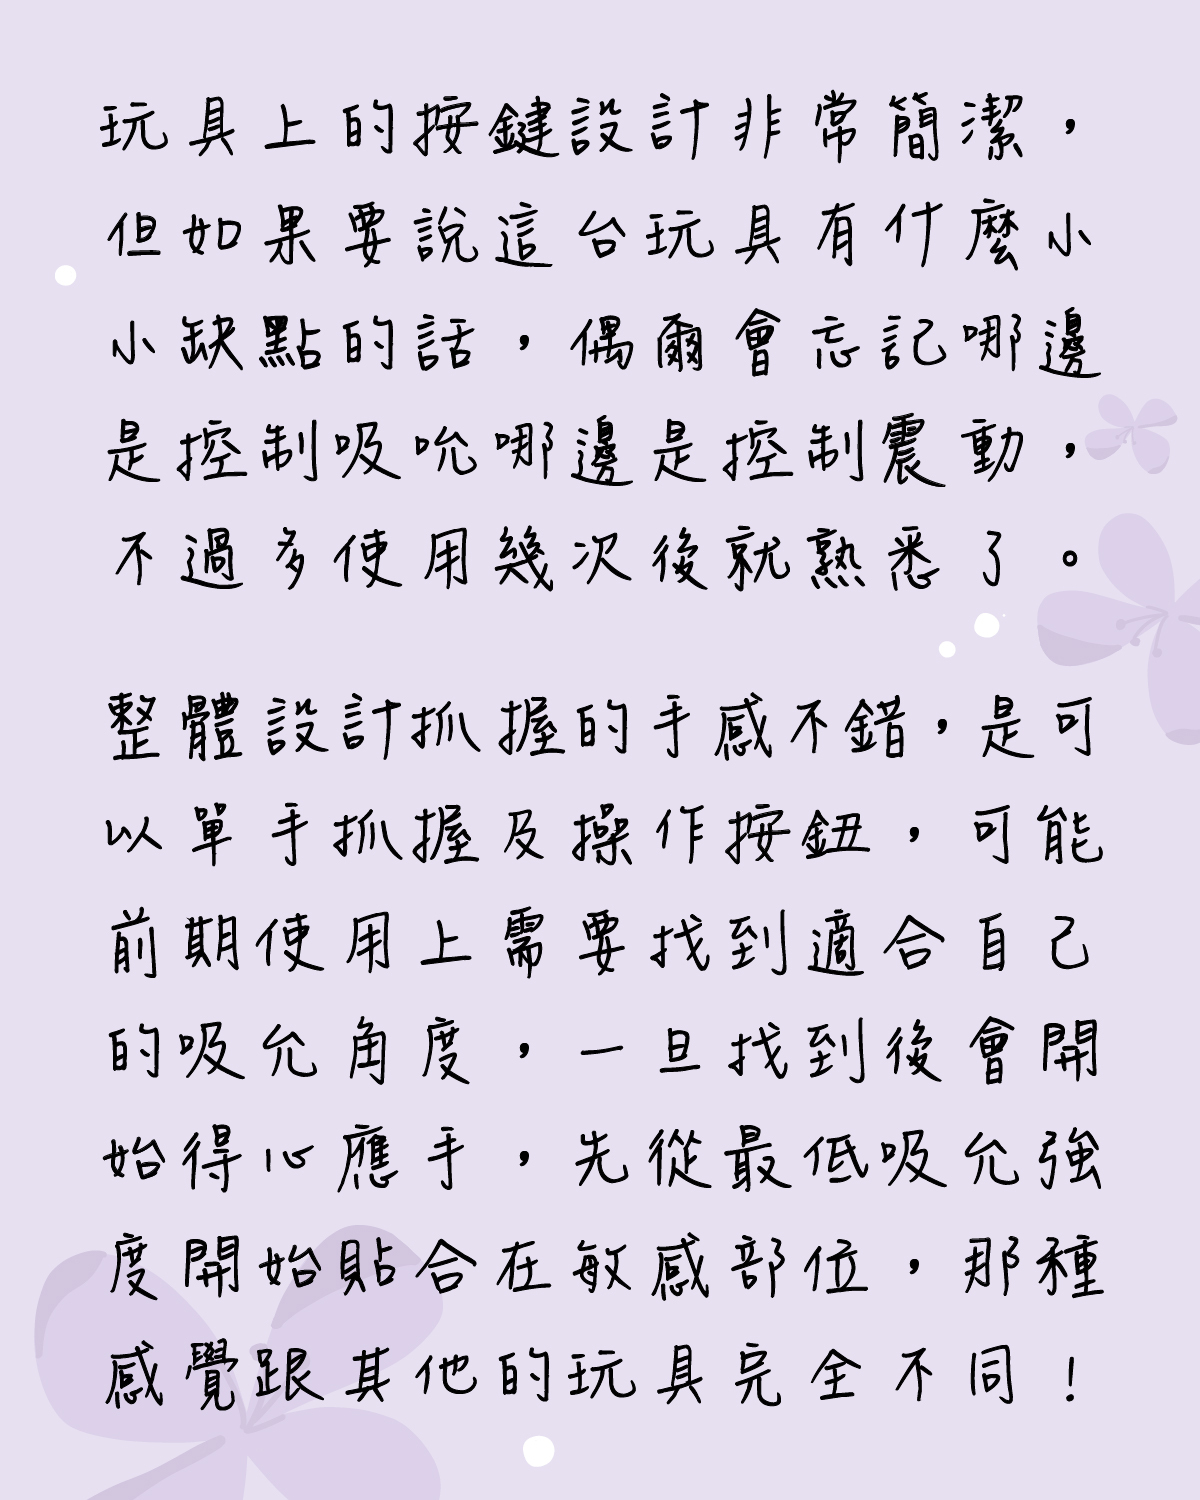 玩具上的按鍵設計非常簡潔，
但如果要說這台玩具有什麼小
小缺點的話，偶爾會忘記哪邊
是控制吸吮哪邊是控制震動，
不過多使用幾次後就熟悉了。
整體設計抓握的手感不錯，是可
以單手抓握及操作按鈕，可能
前期使用上需要找到適合自己
的吸允角度，一旦找到後會開
始得心應手，先從最低吸允強
度開始貼合在敏感部位，那種
感覺跟其他的玩具完全不同！